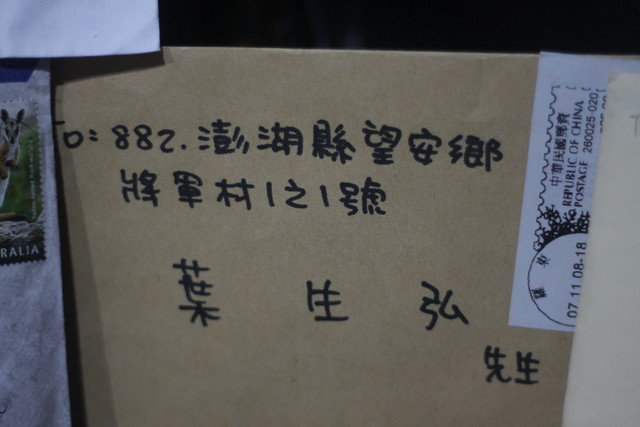 To: 882. 澎湖縣望安鄉
將軍村1之1號
葉生弘
先生
中華民國郵資
REPUBLIC OF CHINA
POSTAGE 260025-020
07.11.08-18
RALIA